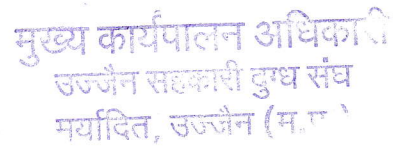 मुख्य कार्यपालन अधिकारी
उज्जैन सहकारी दुग्ध संघ
मर्यादित, उज्जैन (म.